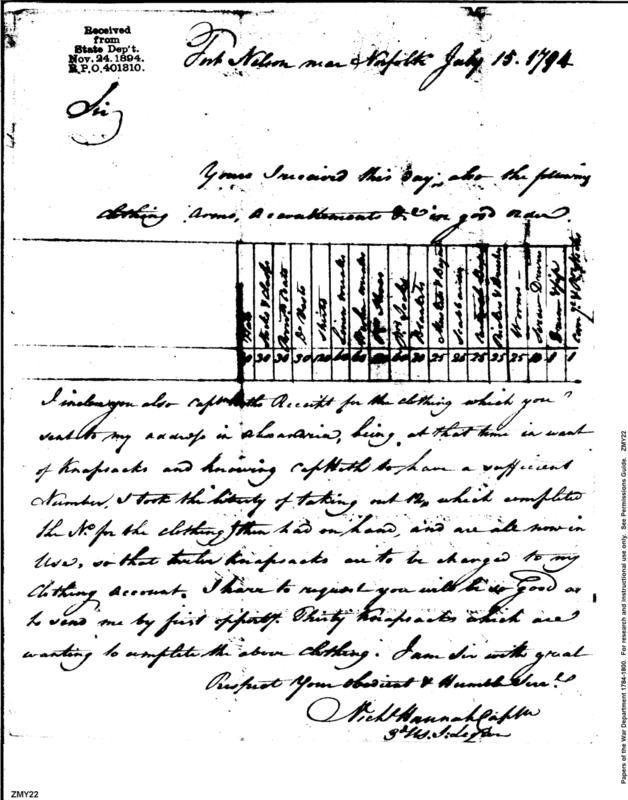 Received
from
State Dep't.
Nov. 24. 1894.
R.P.O. 401310.
Fort Nelson near Norfolk July 15. 1794
Sir
Yours I received this day, also the following
clothing arms, accoutrements &c in good order.
Hats
Stocks & Clasps
Coats
Do Vests
Shirts
Linen overalls
Woolen overalls
Pr Shoes
Pr Socks
Blankets
Muskets & Bayts
Scabbards
Cartridge Boxes
Picker & Brushes
Worms
Screw Drivers
Drum
Comy
30 30 30 120 60 25 25 25 25 25 10 1 1
I inclose you also capt Receipt for the clothing which you
sent to my address in Alexandria, being at that time in want
of Knapsacks and knowing capt to have a sufficient
Number, I took the liberty of taking out 12, which completed
the No. for the clothing I then had on hand, and are all now in
Use, so that twelve Knapsacks are to be charged to my
Clothing account. I have to request you will be so Good as
to send me by first opporty. Thirty Knapsacks which are
wanting to complete the above clothing. I am Sir with great
Respect Your obedient & Humble Servt.
Nichs Hannah Captn
3d U.S. Legion
ZMY22
Papers of the War Department 1784-1800. For research and instructional use only. See Permissions Guide. ZMY22